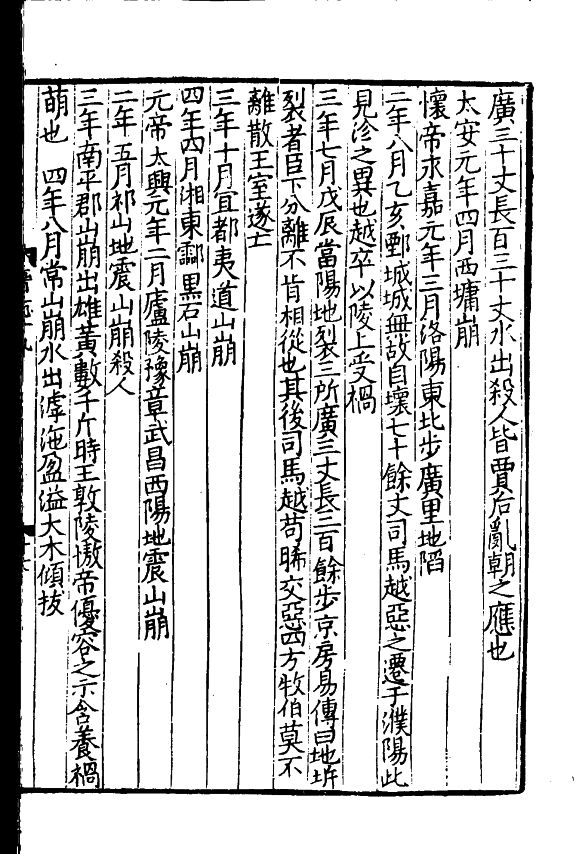 廣三十丈長百三十丈水出殺人皆賈后亂朝之應也
太安元年四月西墉崩
懷帝永嘉元年三月洛陽東北步廣里地陷
二年八月乙亥鄄城城無故自壞七十餘丈司馬越惡之遷于濮陽此
見沴之異也越卒以陵上受禍
三年七月戊辰當陽地裂三所廣三丈長三百餘步京房易傳曰地坼
裂者臣下分離不肯相從也其後司馬越苟晞交惡四方牧伯莫不
離散王室遂亡
三年十月宜都夷道山崩
四年四月湘東酃黑石山崩
元帝太興元年二月廬陵豫章武昌西陽地震山崩
二年五月祁山地震山崩殺人
三年南平郡山崩出雄黃數千斤時王敦陵慠帝優容之示含養禍
萌也 四年八月常山崩水出滹沲盈溢大木傾拔